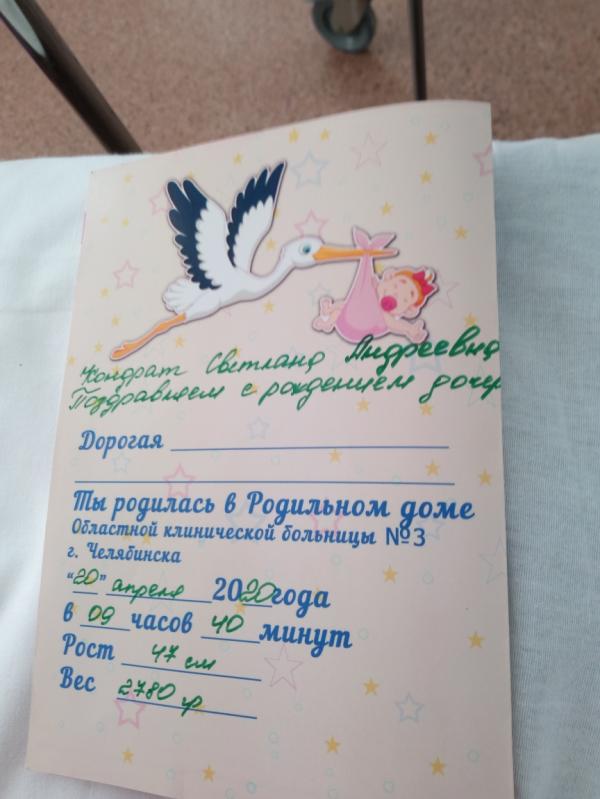 Кондрат Светлана Андреевна
Поздравляем с рождением дочер
Дорогая
Ты родилась в Родильном доме
Областной клинической больницы №3
г. Челябинска
"20" апреля 2020 года
в 09 часов 40 минут
Рост 47 см
Вес 2780 гр